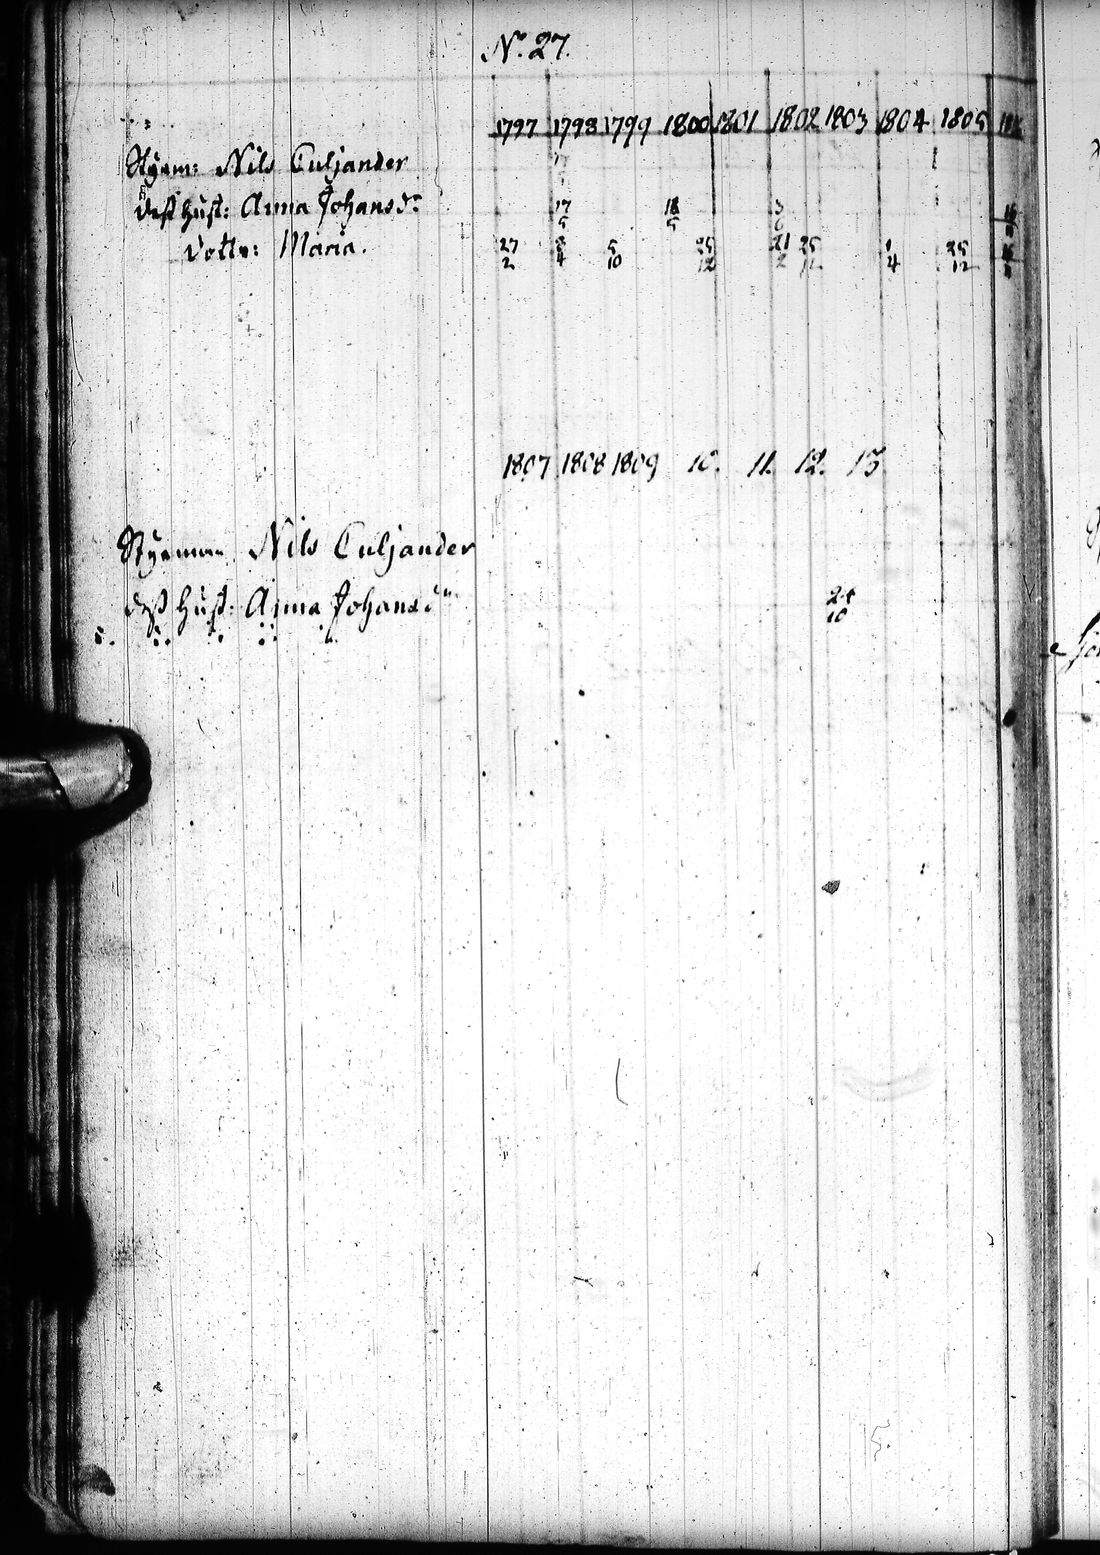 No. 27.
1797 1798 1799 1800 1801 1802 1803 1804 1805
Styrm: Nils Culjander
17
dess hust: Anna Johansdr 17/5 18/5 3/6
Dottr: Maria. 27/2 8/4 5/10 25/12 21/2 25/12 1/4 25/12
1807 1808 1809 10. 11. 12. 13
Styrman Nils Culjander
dess hust: Anna Johansdr 24/10